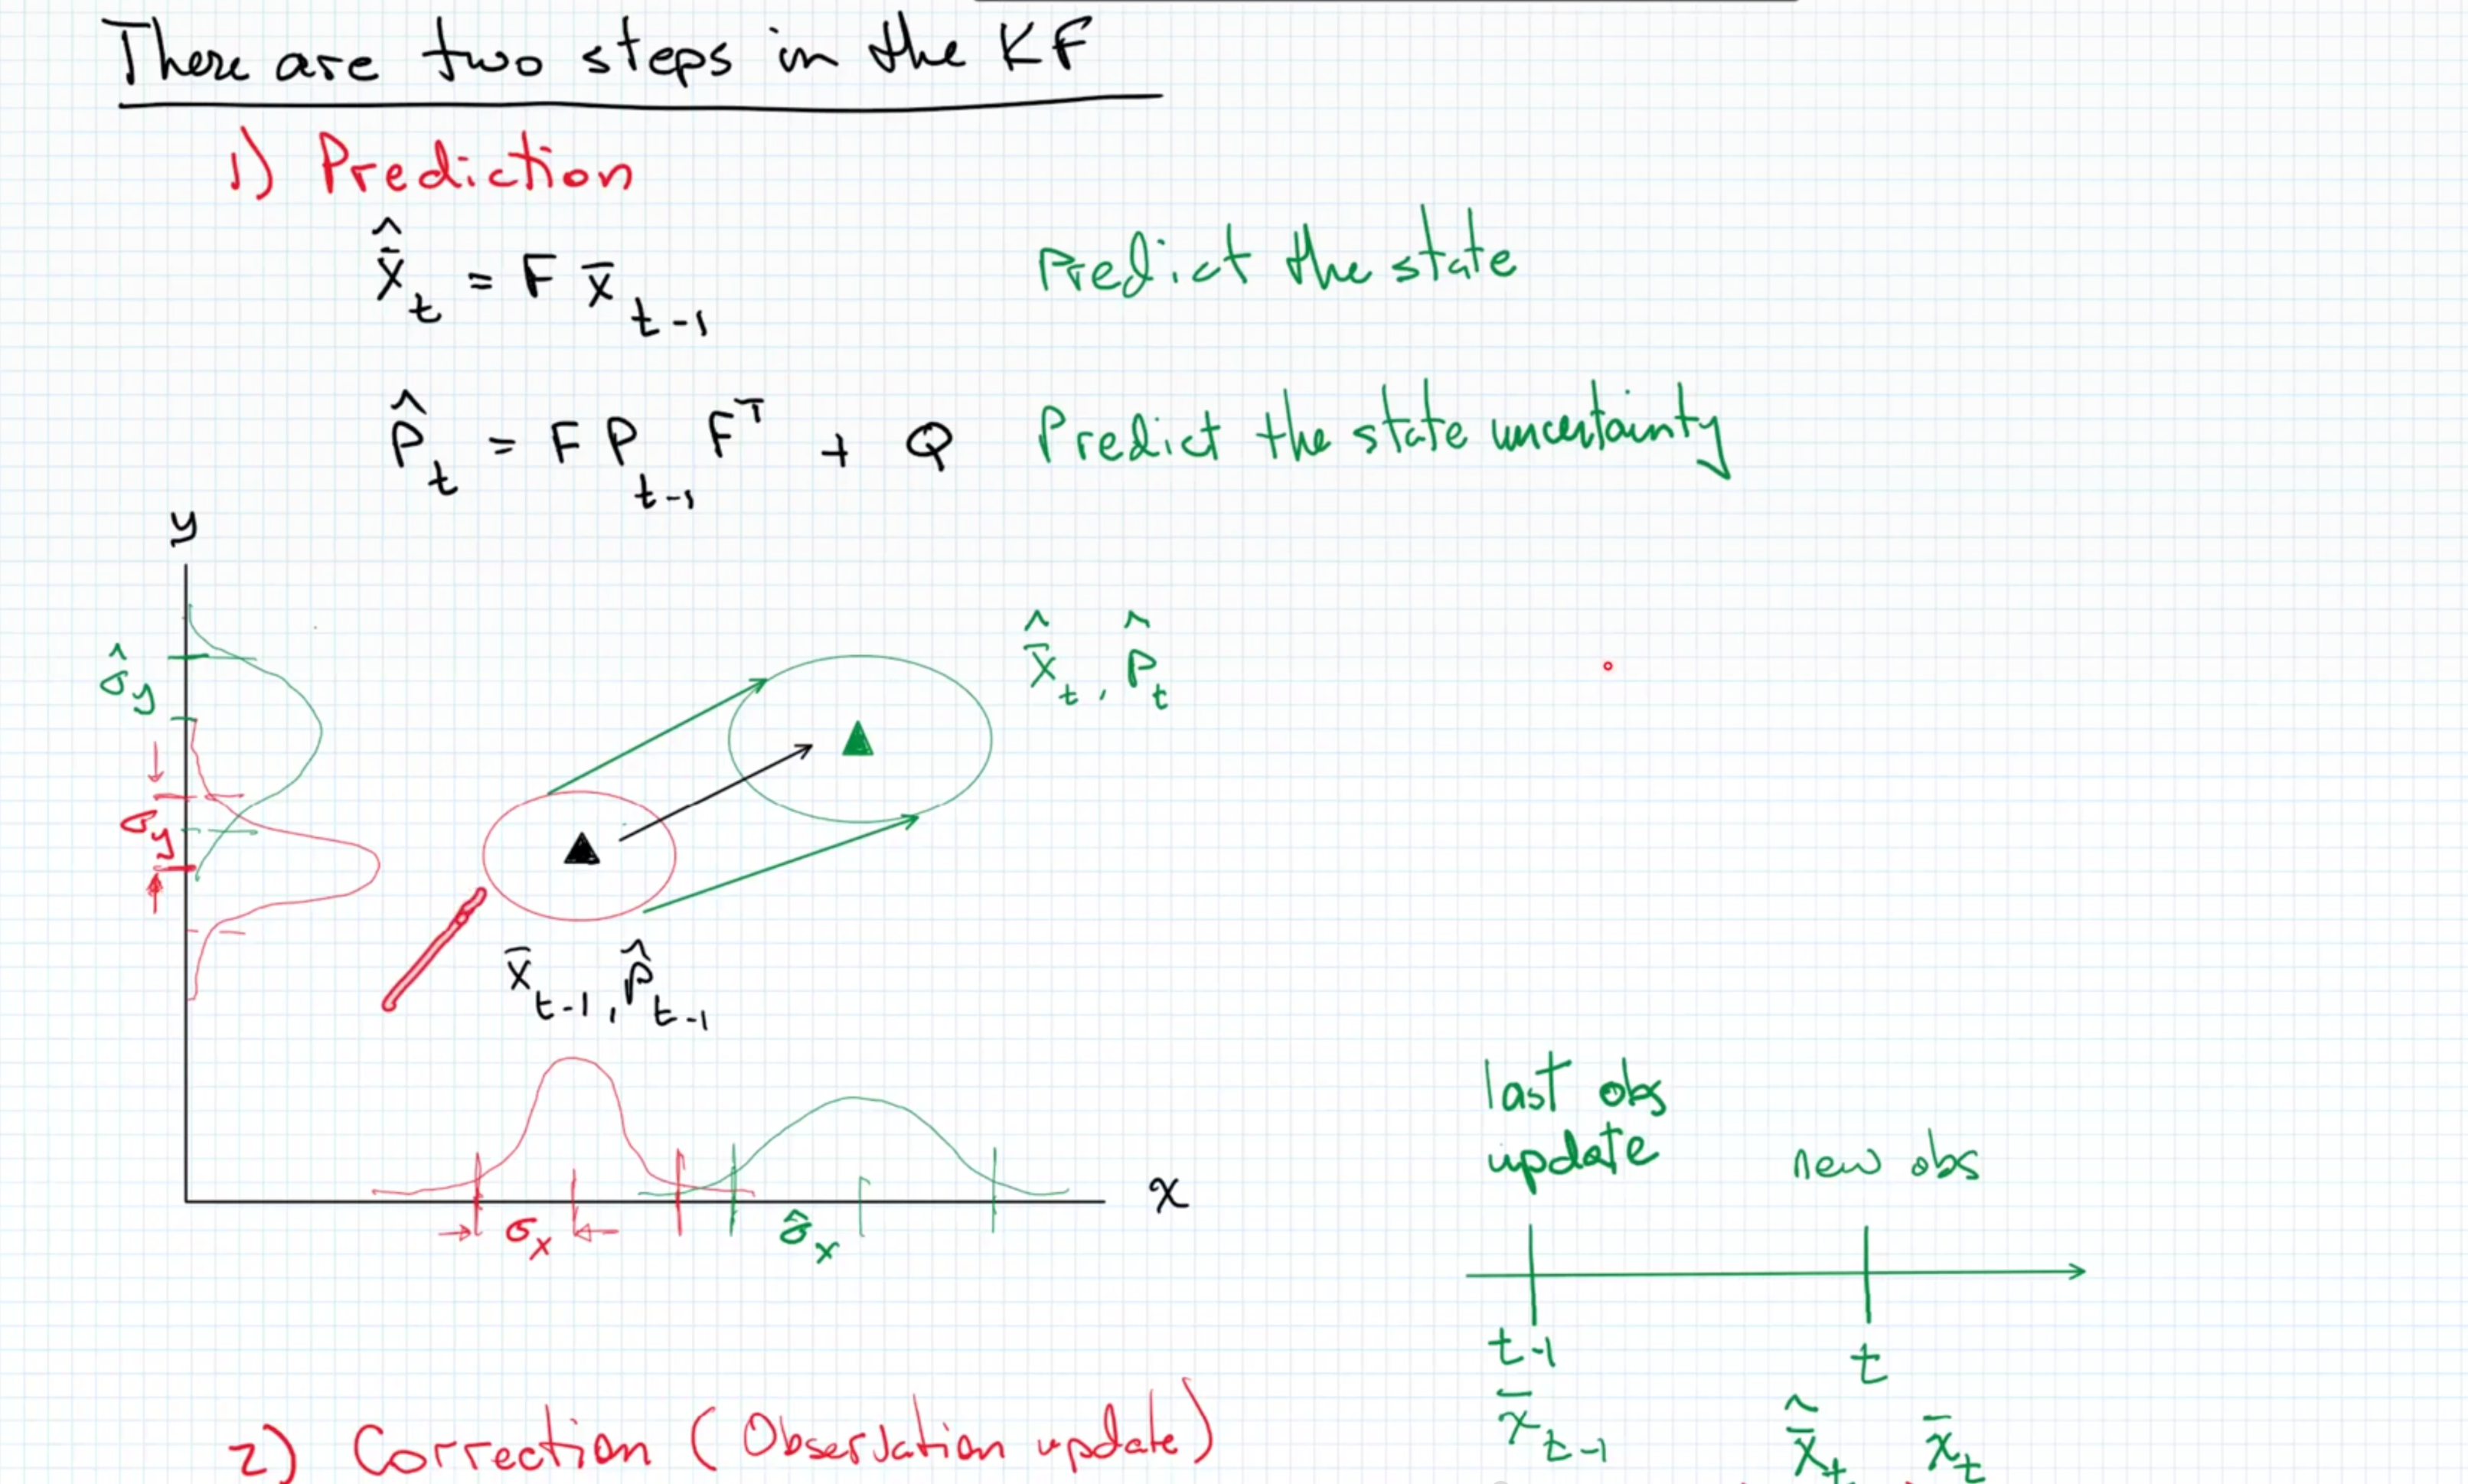 There are two steps in the KF
1) Prediction
x̄̂_t = F x̄_{t-1}    Predict the state
P̂_t = F P_{t-1} F^T + Q    Predict the state uncertainty
y
σ̂_y
x̄̂_t , P̂_t
σ_y
x̄_{t-1} , P̂_{t-1}
σ_x
σ̂_x
x
last obs
update
new obs
t-1
t
x̄_{t-1}
x̄̂_t
x̄_t
2) Correction (Observation update)